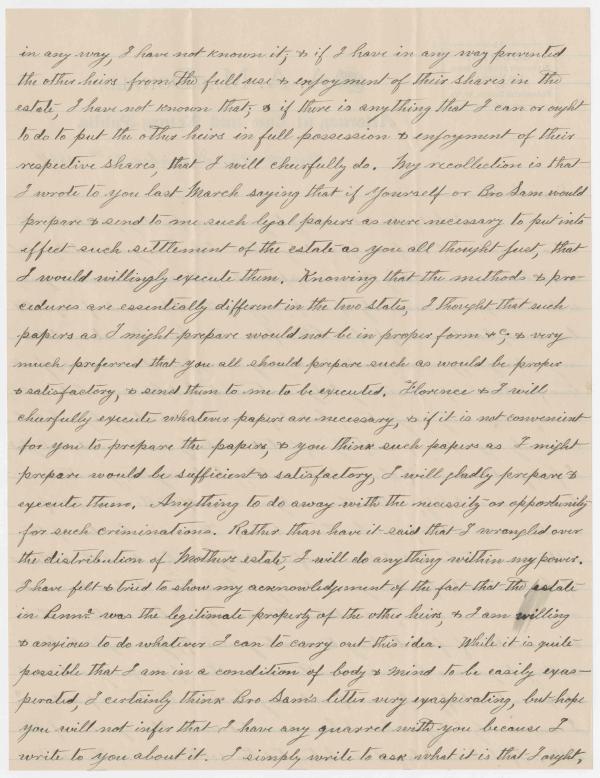 in any way, I have not known it; & if I have in any way prevented
the other heirs from the full use & enjoyment of their shares in the
estate, I have not known that; & if there is anything that I can or ought
to do to put the other heirs in full possession & enjoyment of their
respective shares, that I will cheerfully do. My recollection is that
I wrote to you last March saying that if Yourself or Bro Sam would
prepare & send to me such legal papers as were necessary to put into
effect such settlement of the estate as you all thought just, that
I would willingly execute them. Knowing that the methods & pro-
cedures are essentially different in the two states, I thought that such
papers as I might prepare would not be in proper form &c; & very
much preferred that you all should prepare such as would be proper
& satisfactory, & send them to me to be executed. Florence & I will
cheerfully execute whatever papers are necessary, & if it is not convenient
for you to prepare the papers, & you think such papers as I might
prepare would be sufficient & satisfactory, I will gladly prepare &
execute them. Anything to do away with the necessity or opportunity
for such criminations. Rather than have it said that I wrangled over
the distribution of Mother's estate, I will do anything within my power.
I have felt & tried to show my acknowledgement of the fact that the estate
in Penna. was the legitimate property of the other heirs, & I am willing
& anxious to do whatever I can to carry out this idea. While it is quite
possible that I am in a condition of body & mind to be easily exas-
perated, I certainly think Bro Sam's letter very exasperating, but hope
you will not infer that I have any quarrel with you because I
write to you about it. I simply write to ask what it is that I ought,